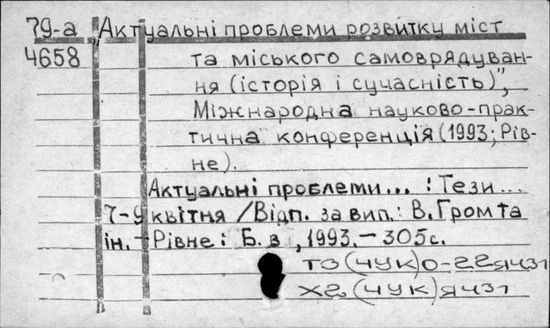 79-а „Актуальні проблеми розвитку міст
4658 та міського самоврядуван-
ня (історія і сучасність)",
Міжнародна науково-прак-
тична конференція (1993; Рів-
не).
Актуальні проблеми... : Тези...
7-9 квітня / Відп. за вип.: В. Гром та
ін. – Рівне: Б. в., 1993. – 305 с.
Т3(4УК)0-22я431
Х2(4УК)я431